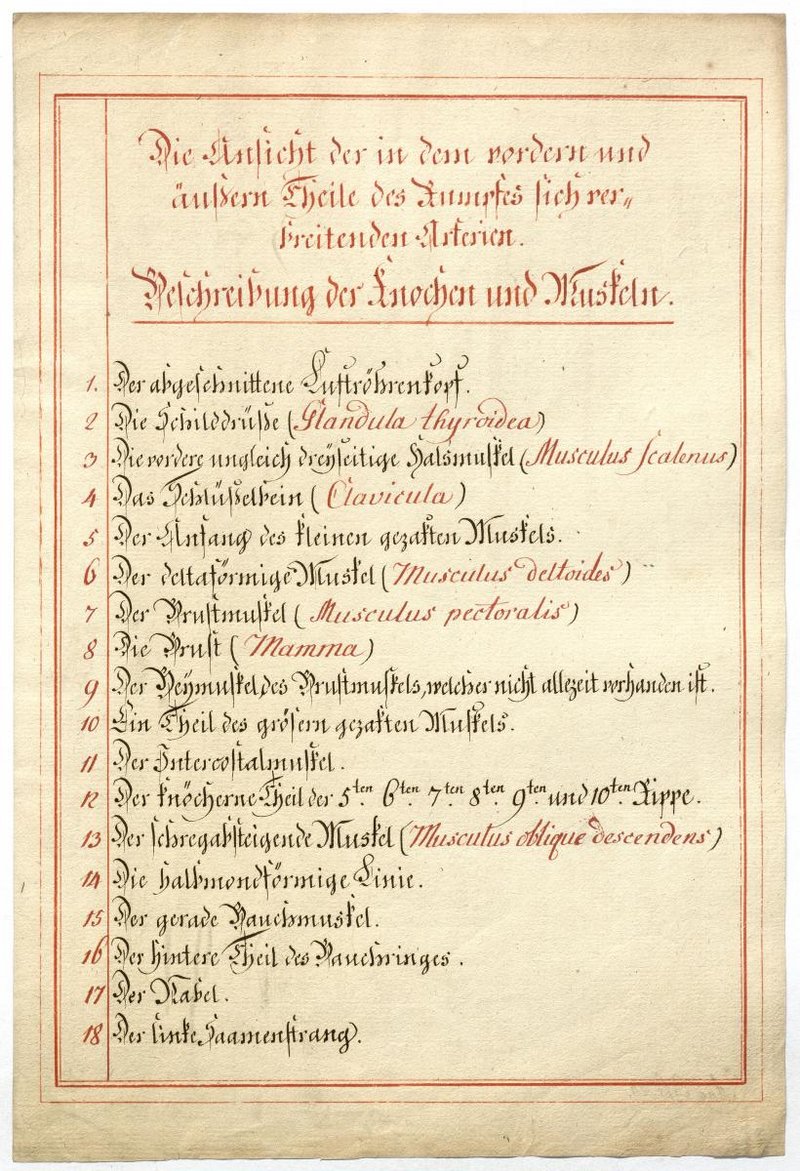 Die Ansicht der in dem vordern und
äußern Theile des Rumpfes sich ver„
breitenden Arterien.
Beschreibung der Knochen und Muskeln.
1. Der abgeschnittene Luftröhrenkopf.
2 Die Schilddrüße (Glandula thyroidea)
3 Die vordere ungleich dreyseitige Halsmuskel (Musculus scalenus)
4 Das Schlüßelbein (Clavicula)
5 Der Anfang des kleinen gezakten Muskels.
6 Der deltaförmige Muskel (Musculus deltoides)
7 Der Brustmuskel (Musculus pectoralis)
8 Die Brust (Mamma)
9 Der Beymuskel des Brustmuskels, welcher nicht allezeit vorhanden ist.
10 Ein Theil des grösern gezakten Muskels.
11 Der Intercostalmuskel.
12 Der knöcherne Theil der 5ten. 6ten. 7ten 8ten. 9ten. und 10ten. Rippe.
13 Der schregabsteigende Muskel (Musculus oblique descendens)
14 Die halbmondförmige Linie.
15 Der gerade Bauchmuskel.
16 Der hintere Theil des Bauchringes.
17 Der Nabel.
18 Der linke Saamenstrang.